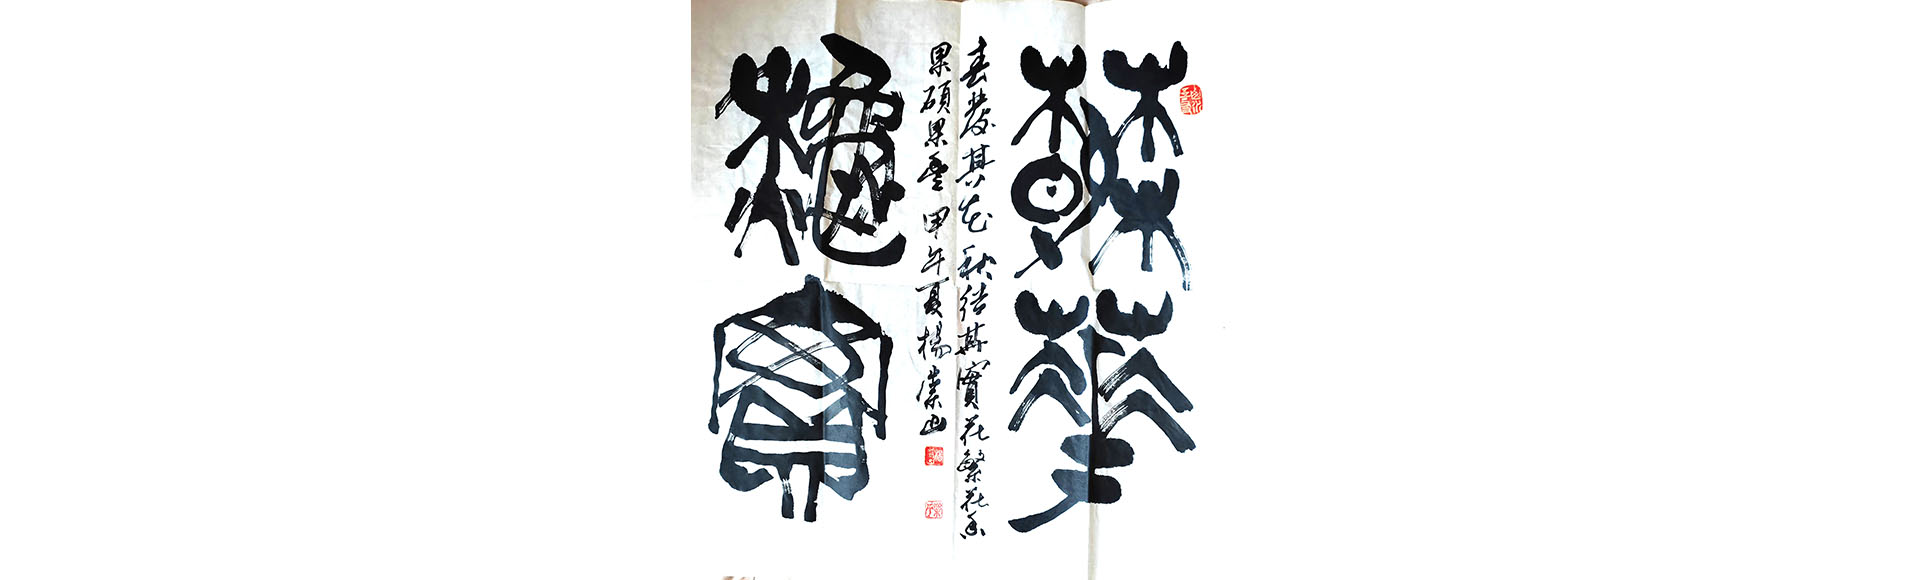 春華
春發其花秋結其實花繁花香
果碩果豐 甲午夏楊山
秋實